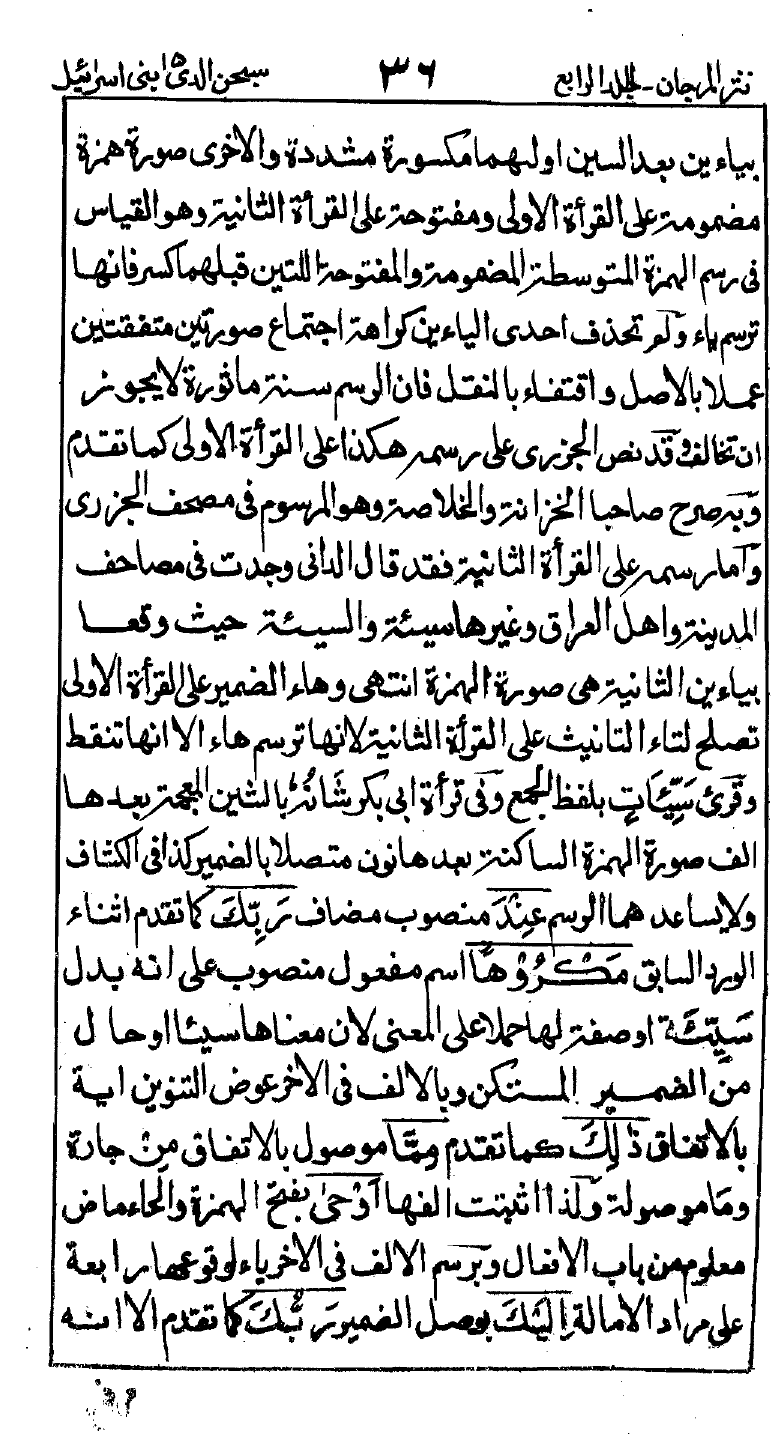 نثر المرجان - الجلد الرابع ٣٦ سبحن الذى ١٥ بنى اسرائيل
بياءين بعد السين اولىهما مكسورة مشددة والاخرى صورة همزة
مضمومة على القرأة الاولى ومفتوحة على القرأة الثانية وهو القياس
فى رسم الهمزة المتوسطة المضمومة والمفتوحة اللتين قبلهما كسر فانها
ترسم ياء ولم تحذف احدى الياءين كراهة اجتماع صورتين متفقتين
عملا بالاصل واقتفاء بالنقل فان الرسم سنة ماثورة لا يجوز
ان تخالف وقد نص الجزرى على رسمه هكذا على القرأة الاولى كما تقدم
وبه صرح صاحبا الخزانة والخلاصة وهو المرسوم فى مصحف الجزرى
واما رسمه على القرأة الثانية فقد قال الدانى وجدت فى مصاحف
المدينة واهل العراق وغيرها سيئة والسيئة حيث وقعا
بياءين الثانية هى صورة الهمزة انتهى وهاء الضمير على القرأة الاولى
تصلح لتاء التانيث على القرأة الثانية لانها ترسم هاء الا انها تنقط
وقرئ سَيِّئَاتٍ بلفظ الجمع وفى قرأة ابى بكر شَانُهُ بالشين المعجمة بعدها
الف صورة الهمزة الساكنة بعدها نون متصلا بالضمير كذا فى الكشاف
ولا يساعدهما الرسم عِنْدَ منصوب مضاف رَبِّكَ كما تقدم اثناء
الورد السابق مَكْرُوْهًا اسم مفعول منصوب على انه بدل
سَيِّئَة او صفة لها حملا على المعنى لان معناها سيئا او حال
من الضمير المستكن وبالالف فى الاخر عوض التنوين اية
بالاتفاق ذٰلِكَ كما تقدم مِمَّا موصول بالاتفاق مِنْ جارة
ومَا موصولة ولذا اثبتت الفها اَوْحٰى بفتح الهمزة والحاء ماض
معلوم من باب الافعال وبرسم الالف فى الاخر ياء لوقوعها رابعة
على مراد الامالة اِلَيْكَ بوصل الضمير رَبُّكَ كما تقدم الا انه